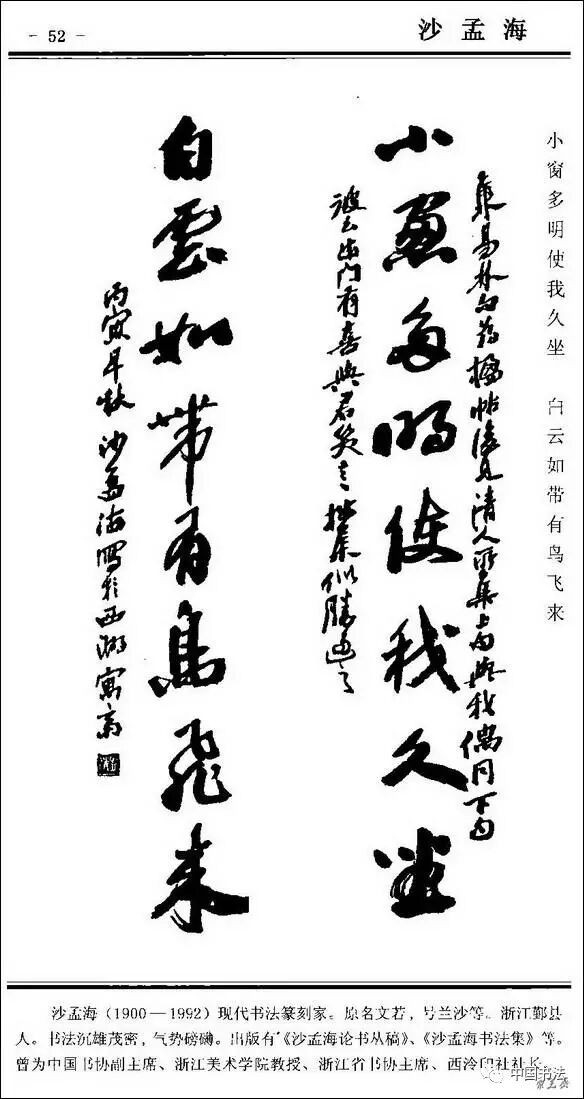 - 52 -
沙孟海
小窗多明使我久坐 白云如带有鸟飞来
小窗多明使我久坐
集易林句为楹帖后见清人所集上句与我偶同下句
彼云出门有喜与君笑言拙集似胜也
白雲如带有鳥飛来
丙寅早秋沙孟海写於西湖寓斋
沙孟海(1900—1992)现代书法篆刻家。原名文若，号兰沙等。浙江鄞县
人。书法沉雄茂密，气势磅礴。出版有《沙孟海论书丛稿》、《沙孟海书法集》等。
曾为中国书协副主席、浙江美术学院教授、浙江省书协主席、西泠印社社长。
中国书法